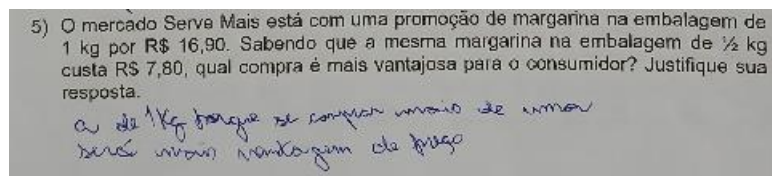 5) O mercado Serve Mais está com uma promoção de margarina na embalagem de
1 kg por R$ 16,90. Sabendo que a mesma margarina na embalagem de ½ kg
custa R$ 7,80, qual compra é mais vantajosa para o consumidor? Justifique sua
resposta.
a de 1Kg porque se comprar mais de uma
será mais vantagem de preço